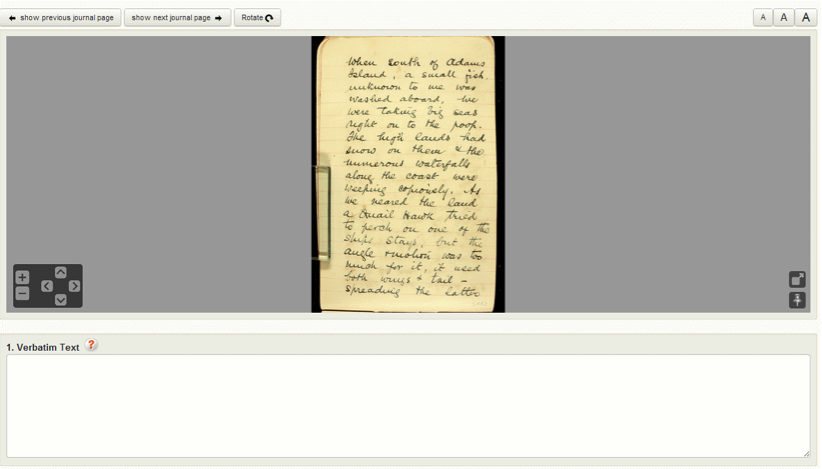 show previous journal page
show next journal page
Rotate
A A A
When South of Adams
Island, a small fish
unknown to me was
washed aboard, we
were taking big seas
right on to the poop.
The high lands had
snow on them & the
numerous waterfalls
along the coast were
weeping copiously. As
we neared the land
a Quail Hawk tried
to perch on one of the
ships stays, but the
angle & motion was too
much for it, it used
both wings & tail -
spreading the latter
1. Verbatim Text ?